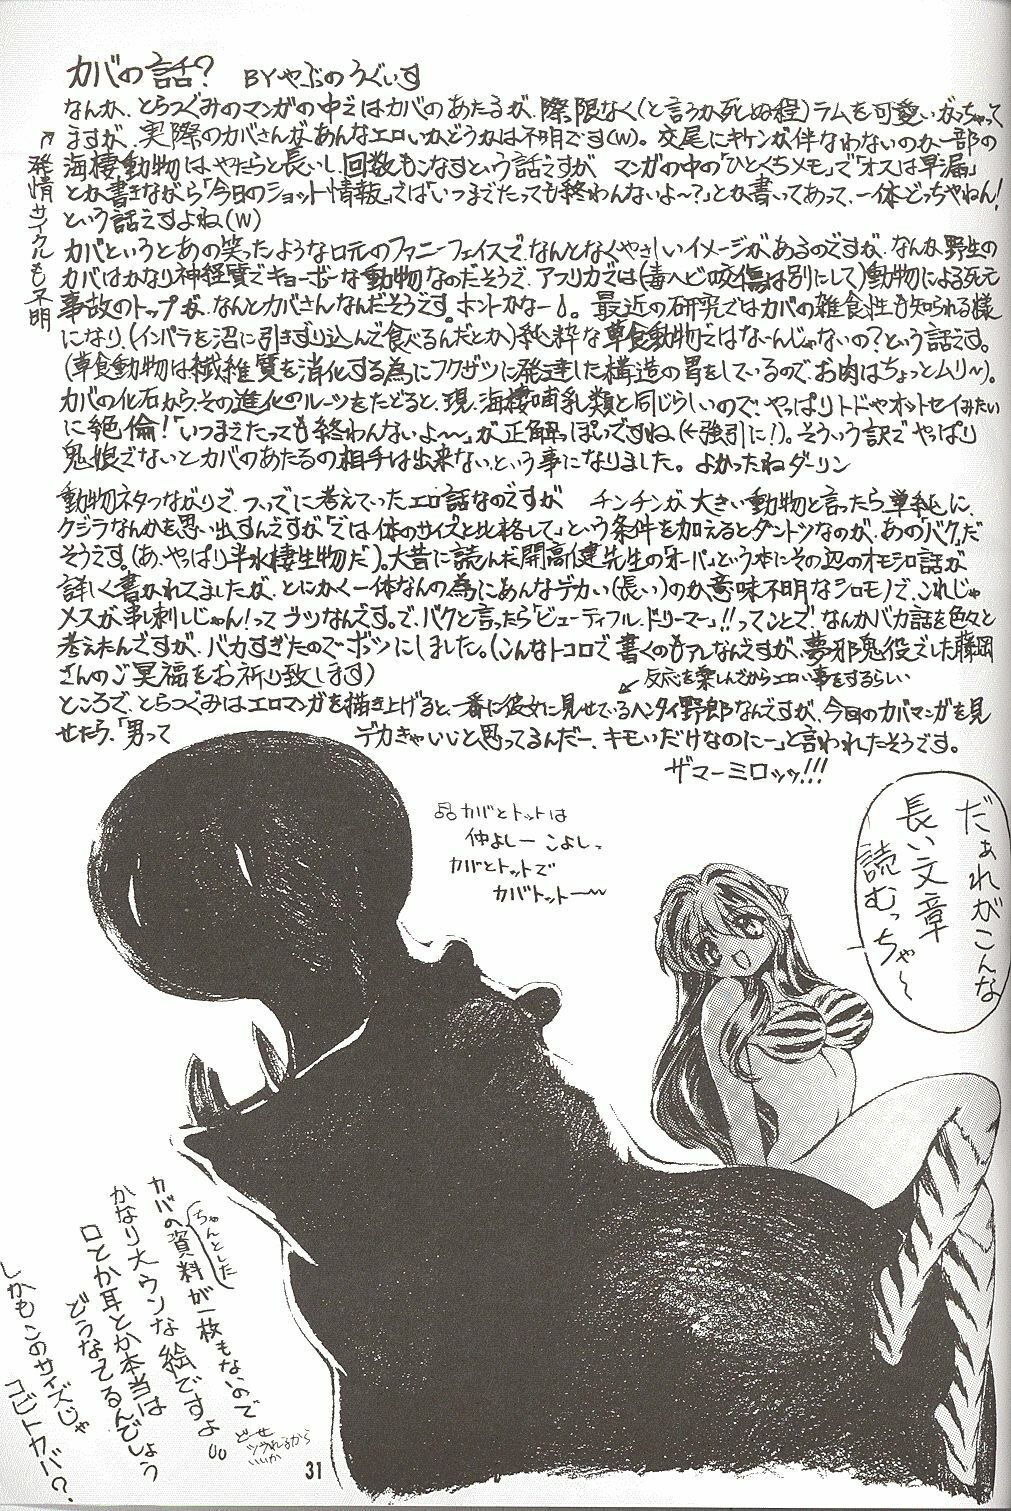 カバの話? BYやぶのうぐいす
なんか、とらつぐみのマンガの中ではカバのあたるが、際限なく(と言うか死ぬ程)ラムを可愛いがっちゃって
ますが、実際のカバさんが、あんなエロいかどうかは不明です(W)。交尾にキケンが伴なわないのか一部の
海棲動物は、やたらと長いし、回数もこなすという話ですが マンガの中の「ひとくちメモ」で「オスは早漏」
とか書きながら「今日のショット情報」では「いつまでたっても終わんないよ〜?」とか書いてあって、一体どっちやねん!
という話ですよね(W)
↖発情サイクルも不明
カバというとあの笑ったような口元のファニーフェイスで、なんとなくやさしいイメージがあるのですが、なんか野生の
カバはかなり神経質でキョーボーな動物なのだそうで、アフリカでは(毒ヘビ咬傷は別にして)動物による死亡
事故のトップが、なんとカバさんなんだそうです。ホントかなー。最近の研究ではカバの雑食性も知られる様
になり、(インパラを沼に引きずり込んで食べるんだとか)純粋な草食動物ではないんじゃないの?という話です。
(草食動物は繊維質を消化する為にフクザツに発達した構造の胃をしているので、お肉はちょっとムリ〜)。
カバの化石から、その進化のルーツをたどると、現、海棲哺乳類と同じらしいので、やっぱりトドやオットセイみたい
に絶倫!「いつまでたっても終わんないよ〜〜」が正解っぽいですね(←強引に!)。そういう訳でやっぱり
鬼娘でないとカバのあたるの相手は出来ない、という事になりました。よかったねダーリン
動物ネタつながりで、ついでに考えていったエロ話なのですが チンチンが大きい動物と言ったら単純に、
クジラなんかを思い出すんですが「では体のサイズと比較して」という条件を加えるとダントツなのが、あの「バク」だ
そうです。(あ、やっぱり半水棲生物だ)。大昔に読んだ開高健先生の「オーパ」という本にその辺のオモシロ話が
詳しく書かれてましたが、とにかく一体なんの為にあんなデカい(長い)のか意味不明なシロモノで、これじゃ
メスが串刺しじゃん!ってブツなんです。で、バクと言ったら「ビューティフル・ドリーマー」!!ってことで、なんかバカ話を色々と
考えたんですが、バカすぎたのでボツにしました。(こんなトコロで書くのもアレなんですが、夢邪鬼役でした藤岡
さんのご冥福をお祈り致します)
↙反応を楽しんでからエロい事をするらしい
ところで、とらつぐみはエロマンガを描き上げると、一番に彼女に見せているヘンタイ野郎なんですが、今回のカバマンガを見
せたら、「男って デカきゃいいと思ってるんだー、キモいだけなのにー」と言われたそうです。
ザマーミロッッ!!!
♫カバとトットは
仲よしー こよしー
カバとトットで
カバトットー〜
だぁれがこんな
長い文章
読むっちゃ〜
カバの(ちゃんとした)資料が一枚もないので
かなり大ウソな絵ですよ
口とか耳とか本当は
どうなってるんでしょう
しかもこのサイズじゃ
コビトカバ?
どーせ
ツブれるから
いいか
31